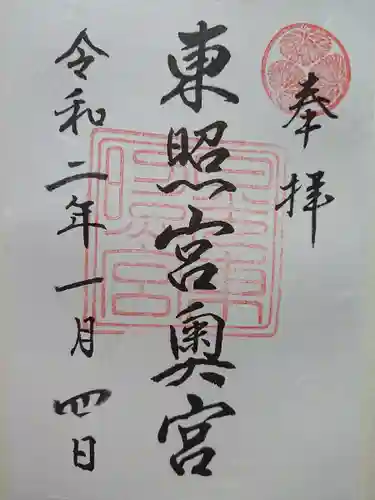 奉拝
東照宮奥宮
令和二年一月四日